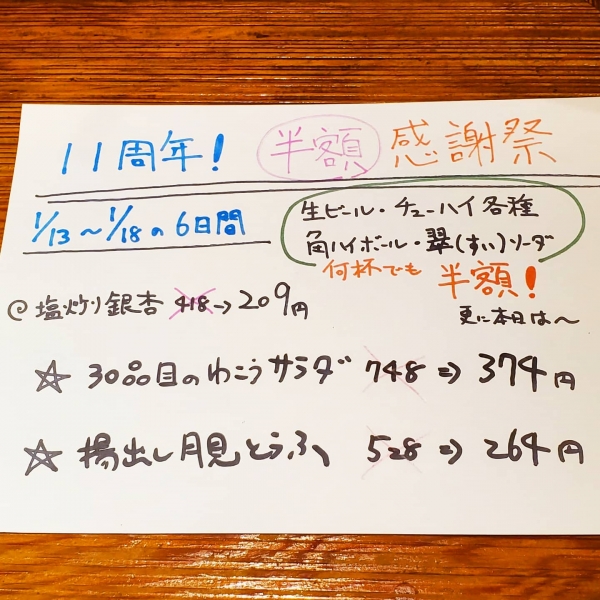 11周年! 半額 感謝祭
1/13〜1/18の6日間
生ビール・チューハイ各種
角ハイボール・翠(すい)ソーダ
何杯でも 半額!
更に本日は〜
@塩炒り銀杏 418→209円
☆ 30品目のわこうサラダ 748⇒374円
☆ 揚出し月見とうふ 528⇒264円